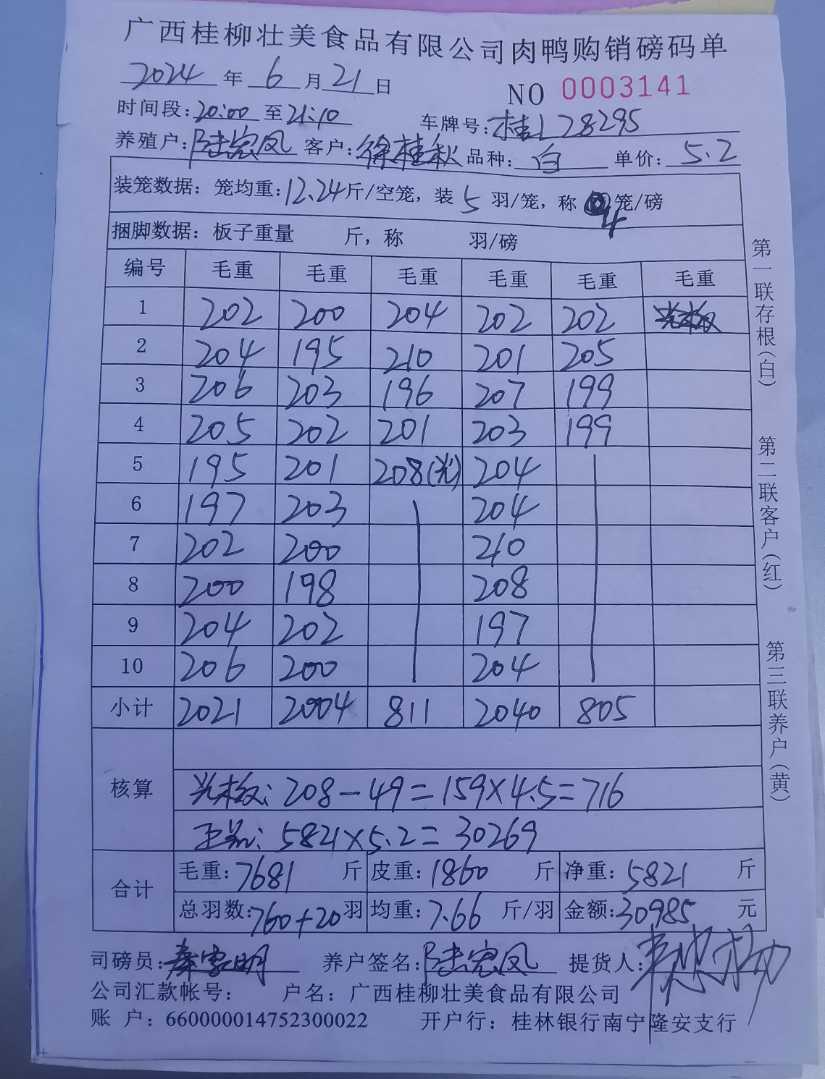 广西桂柳壮美食品有限公司肉鸭购销磅码单
2024 年 6 月 21 日 NO 0003141
时间段: 20:00 至 21:10 车牌号: 桂L78295
养殖户: 陆宏凤 客户: 徐桂秋 品种: 白 单价: 5.2
装笼数据: 笼均重: 12.24 斤/空笼, 装 5 羽/笼, 称 4 笼/磅
捆脚数据: 板子重量 斤, 称 羽/磅
编号 毛重 毛重 毛重 毛重 毛重 毛重
1 202 200 204 202 202
2 204 195 210 201 205
3 206 203 196 207 199
4 205 202 201 203 199
5 195 201 208(光) 204
6 197 203 204
7 202 200 210
8 200 198 208
9 204 202 197
10 206 200 204
小计 2021 2004 811 2040 805
核算
光板: 208-49=159×4.5=716
正品: 5821×5.2=30269
合计 毛重: 7681 斤 皮重: 1860 斤 净重: 5821 斤
总羽数: 760+20 羽 均重: 7.66 斤/羽 金额: 30985 元
司磅员: 养户签名: 陆宏凤 提货人:
公司汇款帐号: 户名: 广西桂柳壮美食品有限公司
账 户: 660000014752300022 开户行: 桂林银行南宁隆安支行
第一联存根(白)
第二联客户(红)
第三联养户(黄)